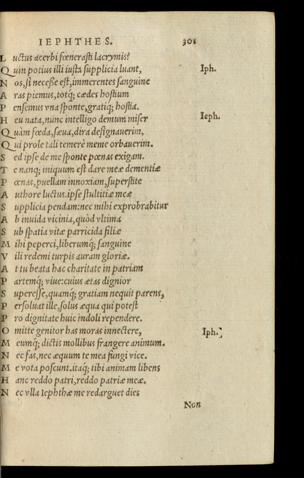 IEPHTHES. 301
Luctus acerbi fœnerasti lacrymis?
Quin potius illi iusta supplicia luant, Iph.
Nos, si necesse est, immerentes sanguine
Aras piemus, totq; cædes hostium
Pensemus vna sponte, gratiq; hostia.
Heu nata, nunc intelligo demum miser Ieph.
Quàm fœda, sæua, dira designauerim,
Qui prole tali temerè meme orbauerim.
Sed ipse de me sponte pœnas exigam.
Te nanq; iniquum est dare meæ dementiæ
Pœnas, puellam innoxiam, superstite
Authore luctus. ipse stultitiæ meæ
Supplicia pendam: nec mihi exprobrabitur
Ab inuida vicinia, quòd vltima
Sub spatia vitæ parricida filiæ
Mihi peperci, liberumq; sanguine
Vili redemi turpis auram gloriæ.
At tu beata hac charitate in patriam
Partemq; viue: cuius ætas dignior
Superesse, quamq; gratiam nequit parens,
Persoluat ille, solus æqua qui potest
Pro dignitate huic indoli rependere.
Omitte genitor has moras innectere, Iph.
Meumq; dictis mollibus frangere animum.
Nec fas, nec æquum te mea fungi vice.
Me vota poscunt. itaq; tibi animam libens
Hanc reddo patri, reddo patriæ meæ.
Nec vlla Iephthæ me redarguet dies
Non